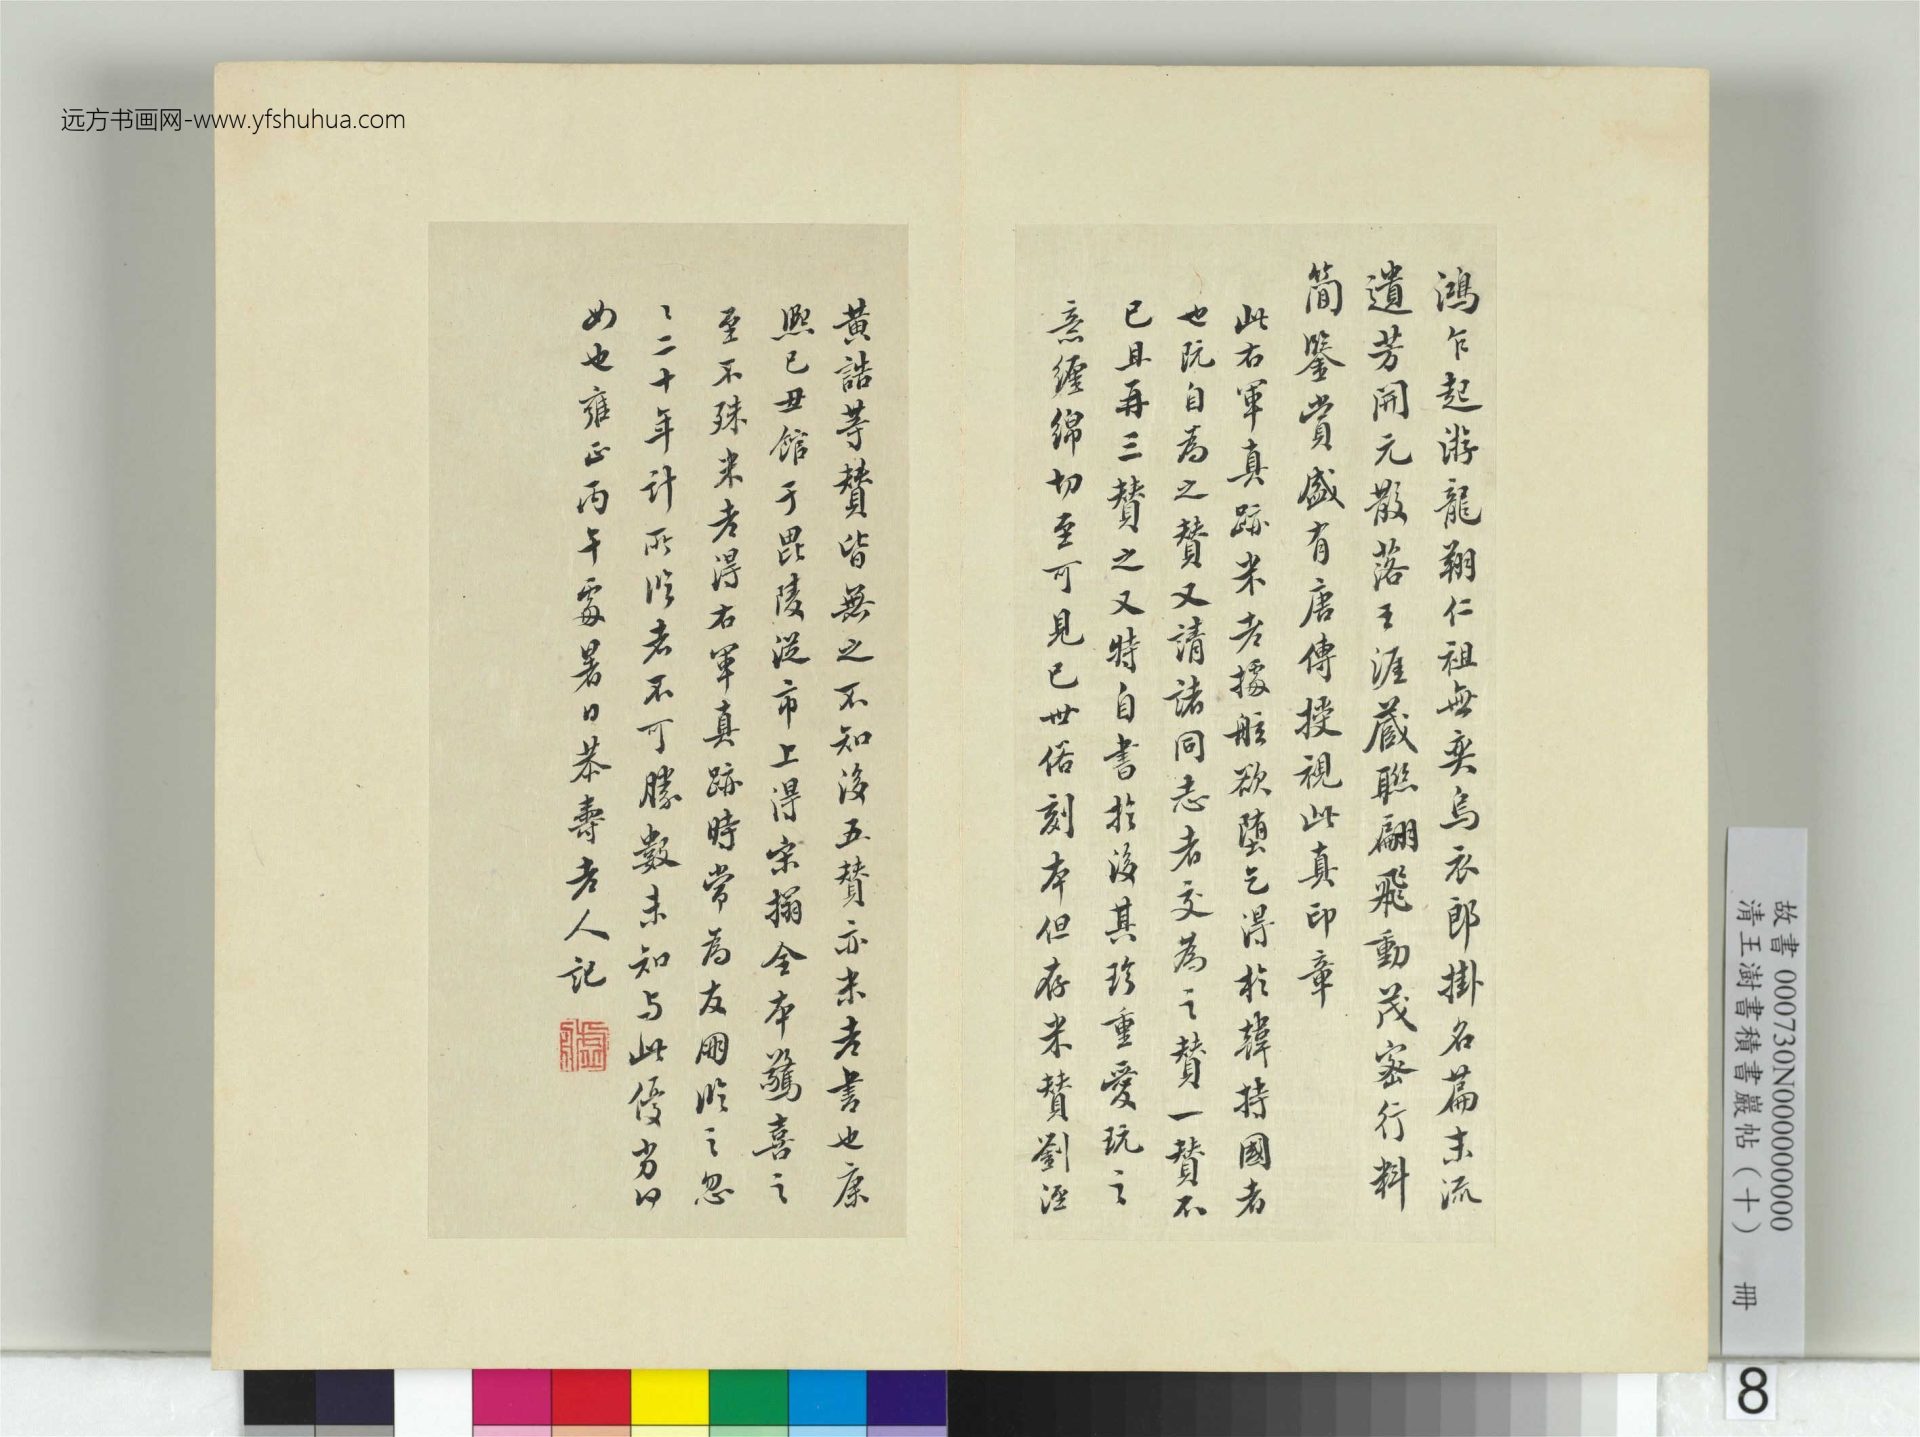 远方书画网-www.yfshuhua.com
鴻乍起游龍翔仁祖無奕烏衣郎掛名篇末流
遺芳開元散落王涯蔵聯翩飛動茂密行料
簡鑒賞盛有唐傳授視此真印章
此右軍真跡米老據舷欲墮乞得於韓持國者
也既自為之贊又請諸同志者交為之贊一贊不
已且再三贊之又特自書於後其珍重愛玩之
意纏綿切至可見已世俗刻本但存米贊劉涇
黃誥等贊皆無之不知後五贊亦米老書也康
熙己丑館于毘陵從市上得宋搨全本驚喜之
至不殊米老得右軍真跡時常為友朋臨之忽
〻二十年計所臨者不可勝數未知与此優劣何
如也雍正丙午處暑日恭壽老人記
故書 000730N000000000
清王澍書積書巖帖（十） 冊
8